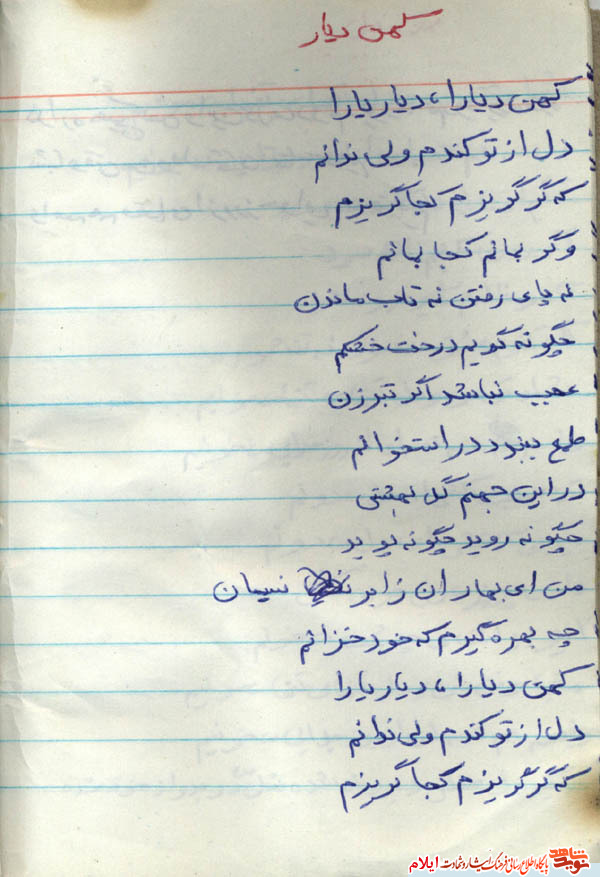 کهن دیار
کهن دیارا، دیار یارا
دل از تو کندم ولی ندانم
که گر گریزم کجا گریزم
وگر بمانم کجا بمانم
نه پای رفتن نه تاب ماندن
چگونه گویم درخت خشکم
عجب نباشد اگر تبرزن
طمع ببندد در استخوانم
در این جهنم گل بهشتی
چگونه روید چگونه بوید
من ای بهاران ز ابر نیسان
چه بهره گیرم که خود خزانم
کهن دیارا، دیار یارا
دل از تو کندم ولی ندانم
که گر گریزم کجا گریزم
نوید شاهد پایگاه اطلاع رسانی فرهنگ ایثار و شهادت ایلام